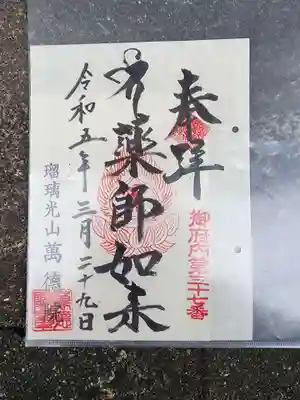 奉拝
御府内第三十七番
薬師如来
令和五年三月二十九日
瑠璃光山萬徳院